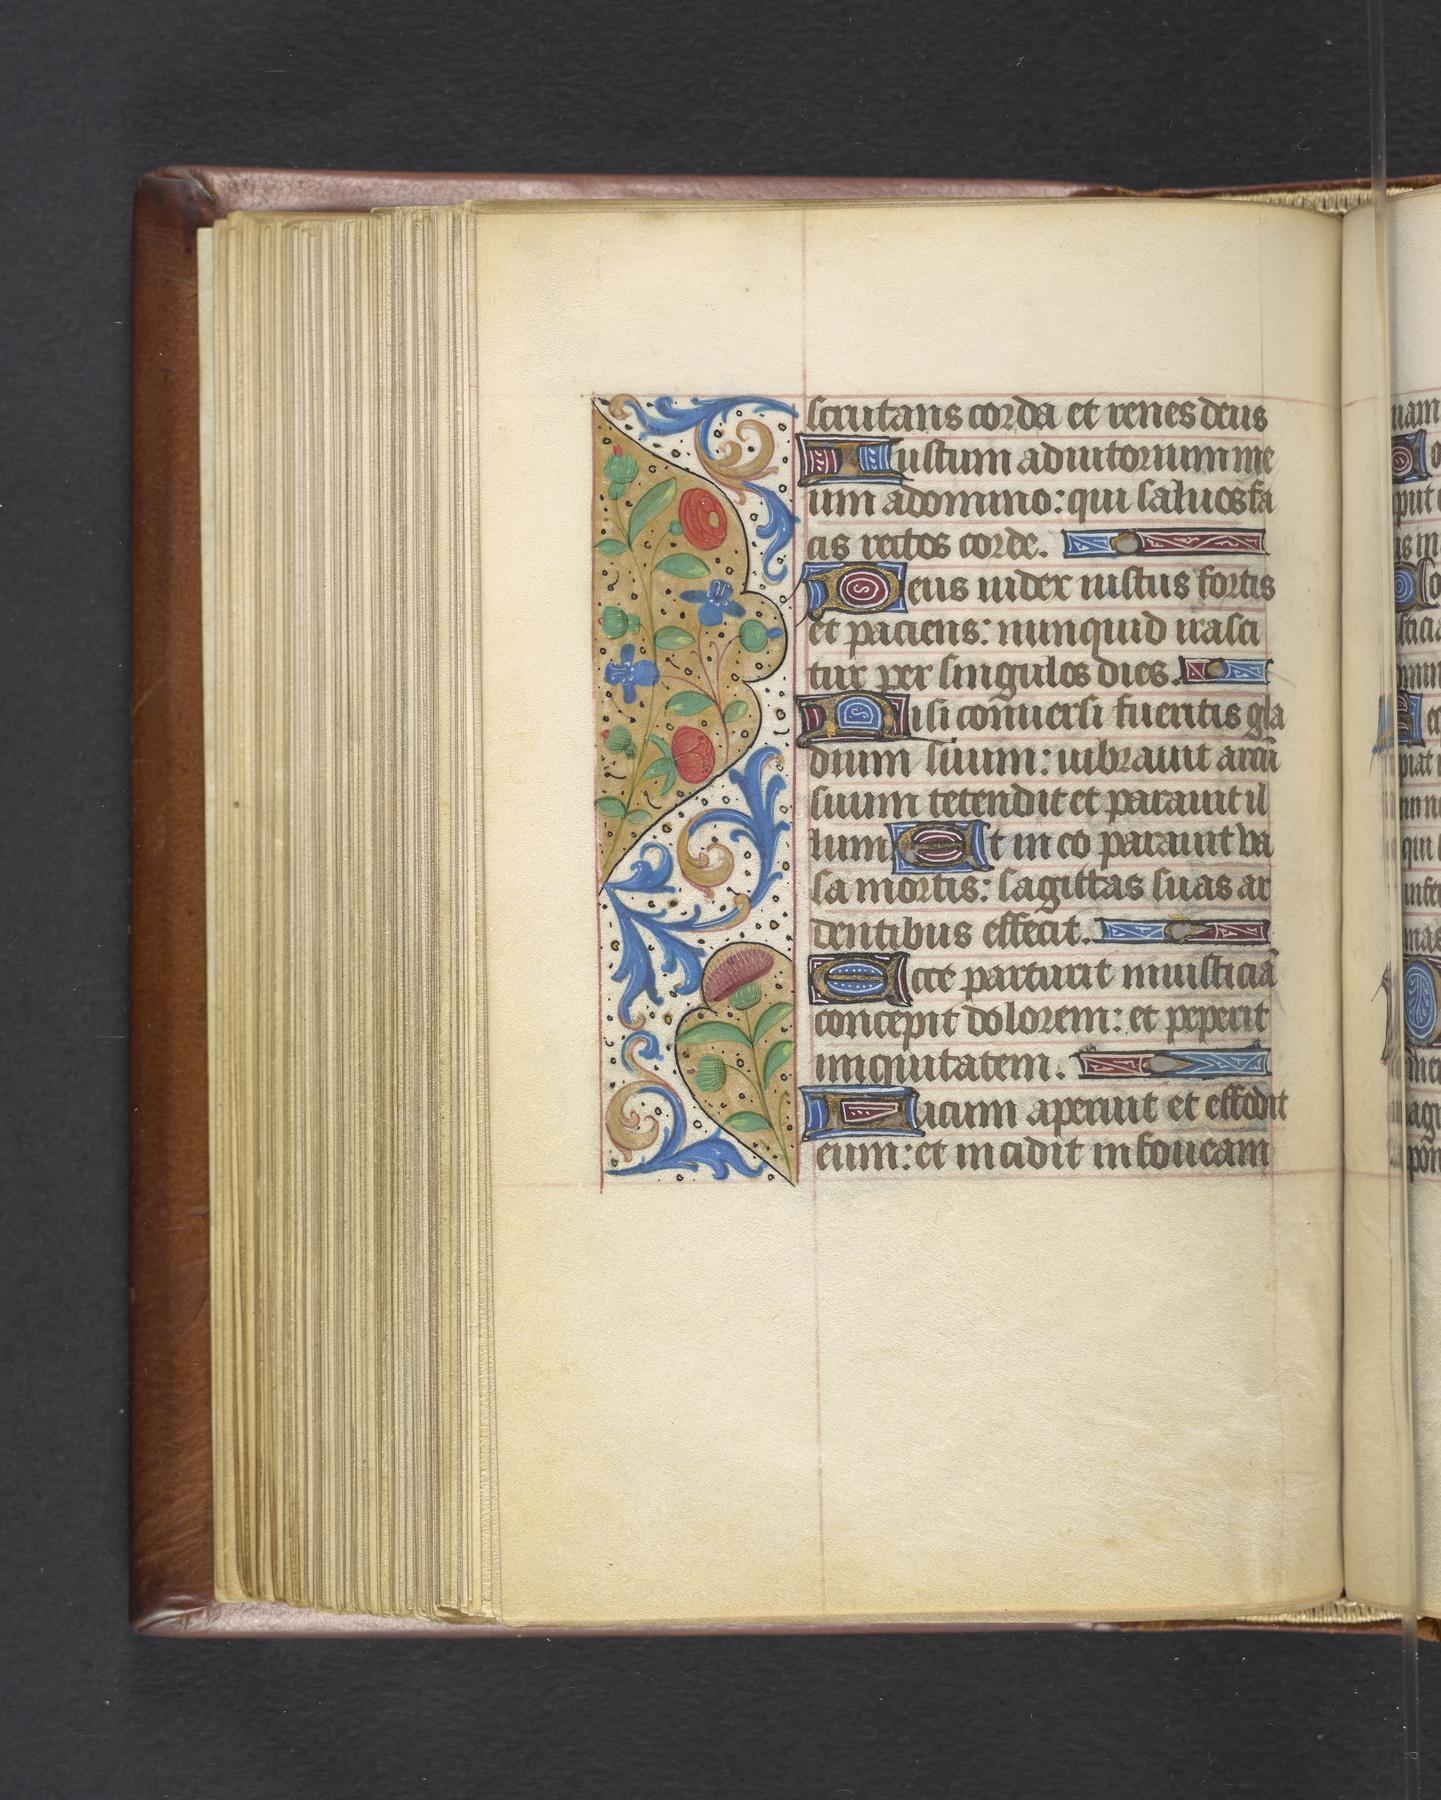 scrutans corda et renes deus
Iustum adiutorium me
um a domino: qui saluos fa
cis rectos corde.
Deus iudex iustus fortis
et paciens: nunquid irasci
tur per singulos dies.
Nisi conuersi fueritis gla
dium suum: uibrauit arcū
suum tetendit et parauit il
lum Et in eo parauit va
sa mortis: sagittas suas ar
dentibus effecit.
Ecce parturit iniusticiā
concepit dolorem: et peperit
iniquitatem.
Lacum aperuit et effodit
eum: et incidit in foueam